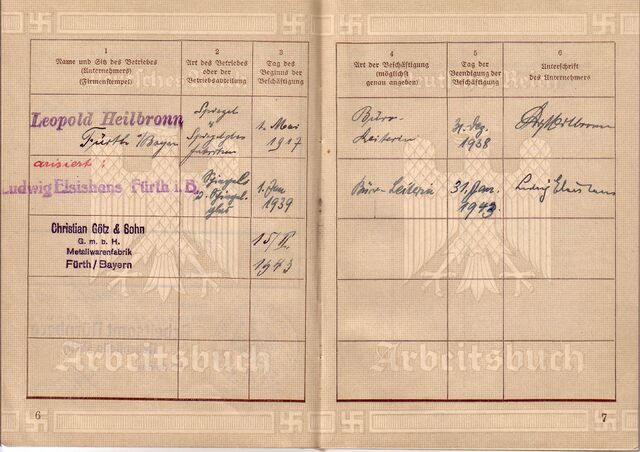 1
Name und Sitz des Betriebes
(Unternehmers)
(Firmenstempel)
2
Art des Betriebes
oder der
Betriebsabteilung
3
Tag des
Beginns der
Beschäftigung
Leopold Heilbronn
Fürth i/Bayern
Spiegel
u.
Spiegelglas
fabriken
1. Mai
1917
arisiert:
Ludwig Elsishans Fürth i. B.
Spiegel
u. Spiegel-
glas
1. Jan
1939
Christian Götz & Sohn
G. m. b. H.
Metallwarenfabrik
Fürth / Bayern
15/II.
1943
Arbeitsbuch
6
4
Art der Beschäftigung
(möglichst
genau angeben)
5
Tag der
Beendigung der
Beschäftigung
6
Unterschrift
des Unternehmers
Büro-
Leiterin
31. Dez.
1938
Heilbronn
Büro-Leiterin
31. Jan.
1943.
Ludwig Elsishans
Arbeitsbuch
7